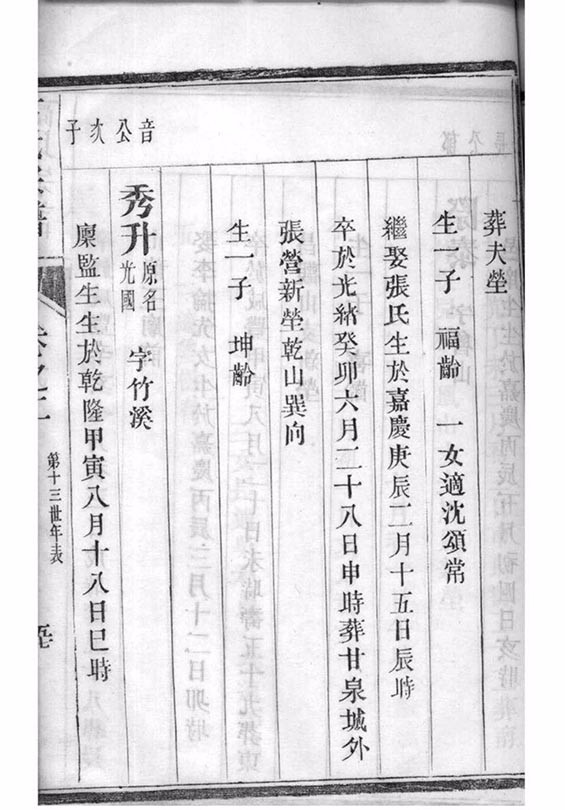 葬夫塋
生一子 福齡 一女適沈頌常
繼娶張氏生於嘉慶庚辰二月十五日辰時
卒於光緒癸卯六月二十八日申時葬甘泉城外
張營新塋乾山巽向
生一子 坤齡
音公次子
秀升 原名光國 字竹溪
廩監生生於乾隆甲寅八月十八日巳時
第十三世年表